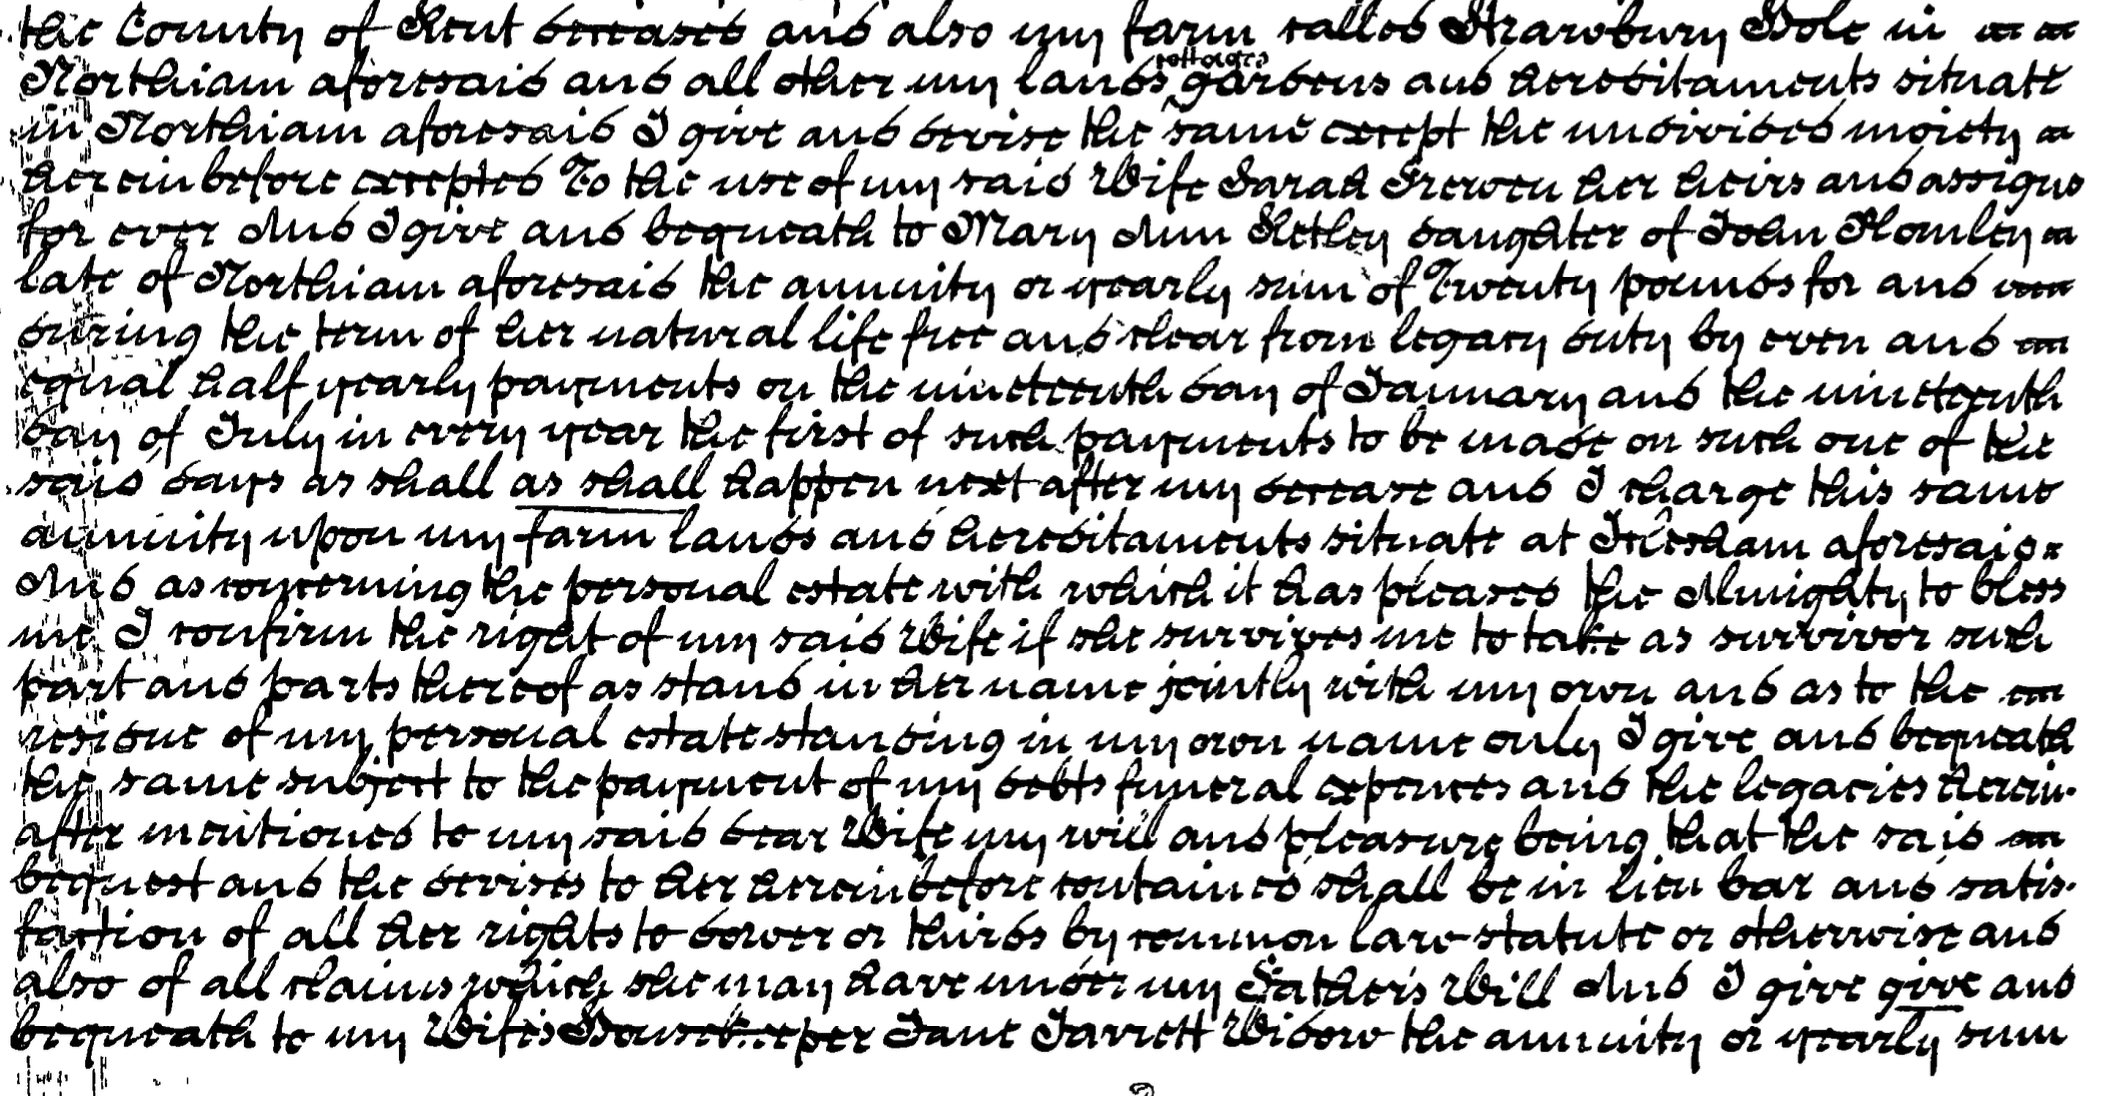 the County of Kent deceased and also my farm called Strawbury Hole in
Northiam aforesaid and all other my lands cottages gardens and hereditaments situate
in Northiam aforesaid I give and devise the same except the undivided moiety
hereinbefore excepted To the use of my said Wife Sarah Frewen her heirs and assigns
for ever And I give and bequeath to Mary Ann Ketley daughter of John Plomley
late of Northiam aforesaid the annuity or yearly sum of Twenty pounds for and
during the term of her natural life free and clear from legacy duty by even and
equal half yearly payments on the nineteenth day of January and the nineteenth
day of July in every year the first of such payments to be made on such one of the
said days as shall as shall happen next after my decease and I charge this same
annuity upon my farm lands and hereditaments situate at Icklesham aforesaid
And as concerning the personal estate with which it has pleased the Almighty to bless
me I confirm the right of my said Wife if she survives me to take as survivor such
part and parts thereof as stand in her name jointly with my own and as to the
residue of my personal estate standing in my own name only I give and bequeath
the same subject to the payment of my debts funeral expences and the legacies herein
after mentioned to my said dear Wife my will and pleasure being that the said
bequest and the devises to her hereinbefore contained shall be in lieu bar and satis
faction of all her rights to dower or thirds by common law statute or otherwise and
also of all claims which she may have under my Father's Will And I give give and
bequeath to my Wife's Housekeeper Jane Jarrett Widow the annuity or yearly sum